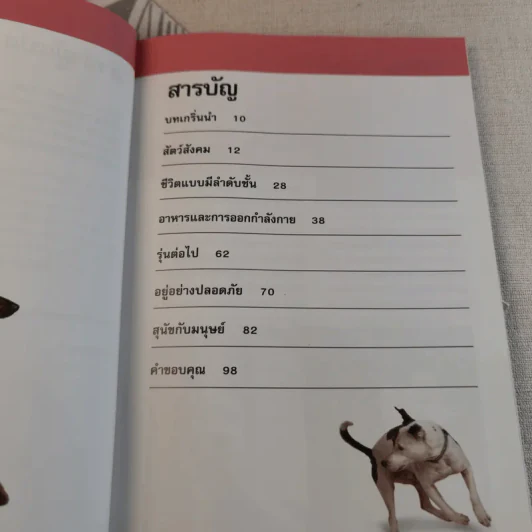 สารบัญ
บทเกริ่นนำ 10
สัตว์สังคม 12
ชีวิตแบบมีลำดับชั้น 28
อาหารและการออกกำลังกาย 38
รุ่นต่อไป 62
อยู่อย่างปลอดภัย 70
สุนัขกับมนุษย์ 82
คำขอบคุณ 98